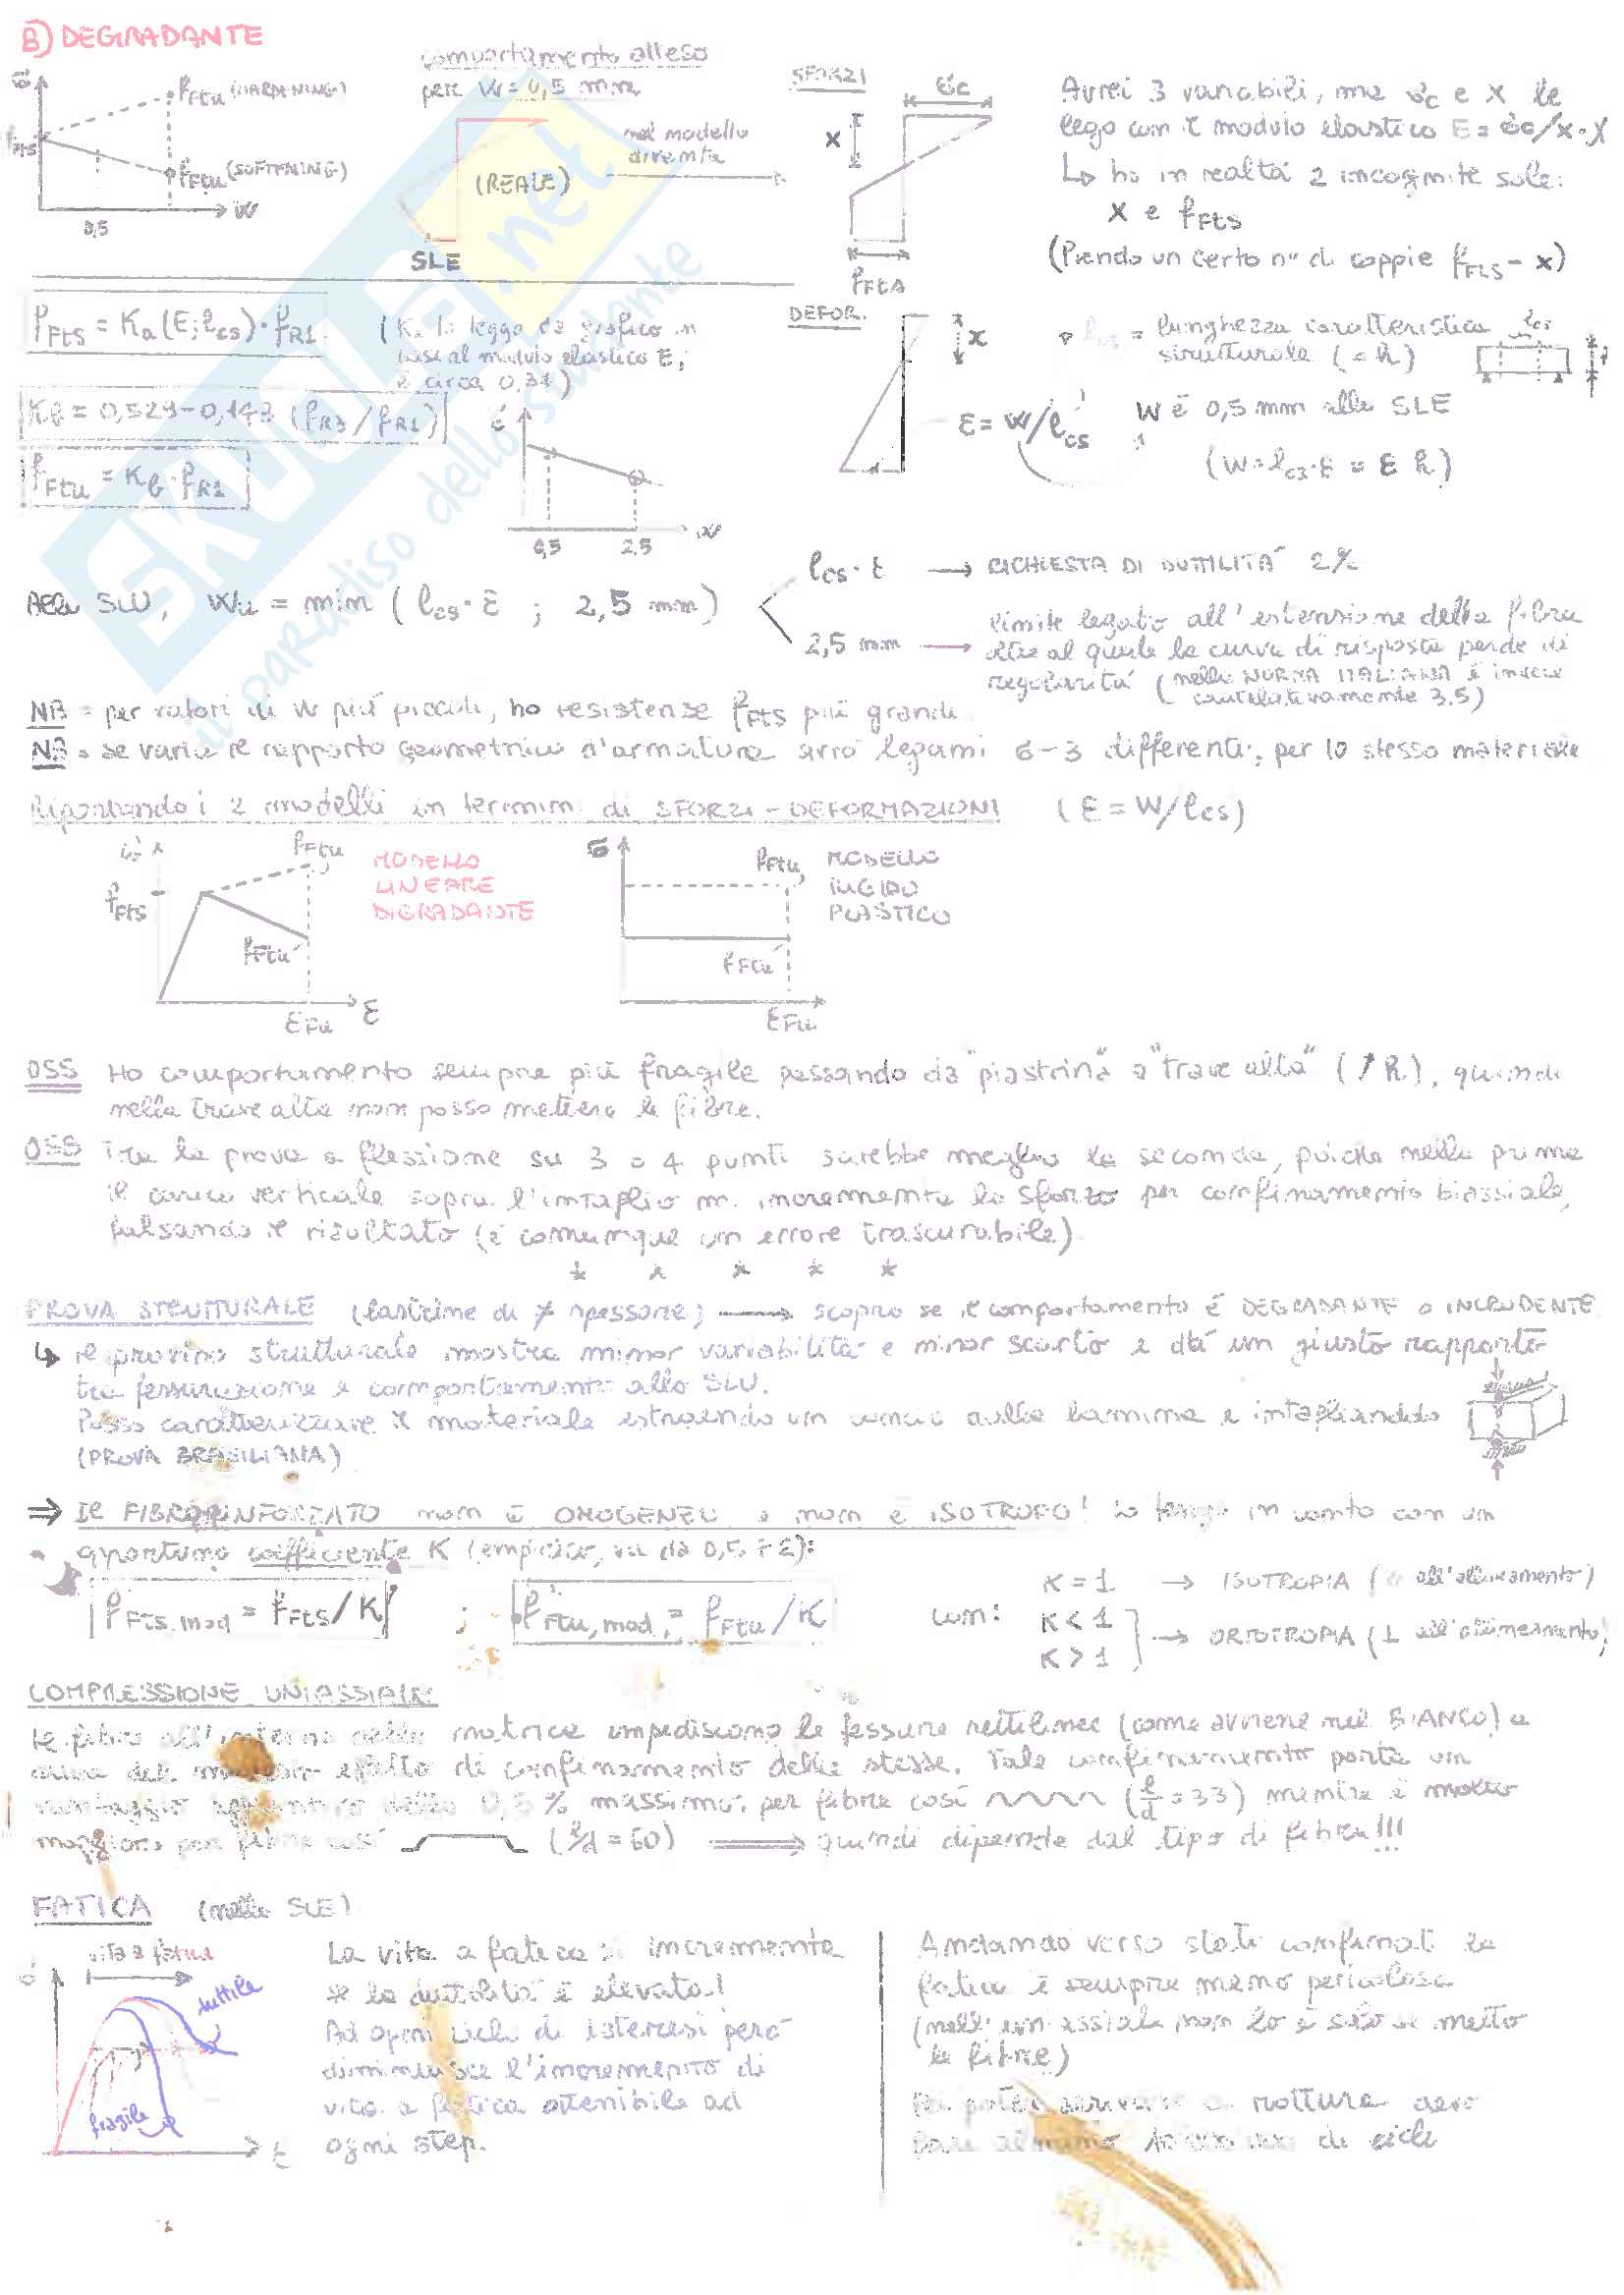 B) DEGRADANTE
σ
fFtu (HARDENING)
fFts
fFtu (SOFTENING)
0,5
W
comportamento atteso
per W = 0,5 mm
(REALE)
SLE
nel modello
diventa
SFORZI
σc
X
fFts
Avrei 3 variabili, ma σc e X le
lego con il modulo elastico E = σc/X · X
↳ ho in realtà 2 incognite sole:
X e fFts
(Prendo un certo n° di coppie fFts - X)
fFts = Ka (E; lcs) · fR1
(Ka lo leggo da grafico in
base al modulo elastico E,
è circa 0,37)
Kb = 0,529 - 0,143 (fR3 / fR1)
fFtu = Kb · fR1
σ
0,5
2,5
W
DEFOR.
X
ε = W/lcs
lcs = lunghezza caratteristica
strutturale (= h)
lcs
W è 0,5 mm allo SLE
(W = lcs · ε = ε h)
Allo SLU, Wu = min ( lcs · ε ; 2,5 mm )
lcs · ε → RICHIESTA DI DUTTILITÀ 2%
2,5 mm → limite legato all'estensione della fibra
oltre al quale la curva di risposta perde di
regolarità (nella NORMA ITALIANA è invece
cautelativamente 3.5)
NB = per valori di W più piccoli, ho resistenze fFts più grandi
NB = se varia il rapporto geometrico d'armatura avrò legami differenti, per lo stesso materiale
Riportando i 2 modelli in termini di SFORZI - DEFORMAZIONI (ε = W/lcs)
σ
fFtu
fFts
fFtu
εFu
ε
MODELLO
LINEARE
DIGRADANTE
σ
fFtu
fFtu
εFu
MODELLO
RIGIDO
PLASTICO
OSS Ho comportamento sempre più fragile passando da "piastrina" a "trave alta" (↑ h), quindi
nella trave alta non posso mettere le fibre.
OSS Tra la prova a flessione su 3 o 4 punti sarebbe meglio la seconda, poiché nella prima
il carico verticale sopra l'intaglio mi incrementa lo sforzo per confinamento biassiale,
falsando il risultato (è comunque un errore trascurabile)
* * * * *
PROVA STRUTTURALE (lastrine di ≠ spessore) → scopro se il comportamento è DEGRADANTE o INCRUDENTE
↳ il provino strutturale mostra minor variabilità e minor scarto e dà un giusto rapporto
tra fessurazione e comportamento allo SLU.
Posso caratterizzare il materiale estraendo un concio dalla lamina e intagliandolo
(PROVA BRASILIANA)
⇒ Il FIBRORINFORZATO non è OMOGENEO e non è ISOTROPO! Lo tengo in conto con un
opportuno coefficiente K (empirico, va da 0,5 ÷ 2):
fFts,mod = fFts / K ; fFtu,mod = fFtu / K
con:
K = 1 → ISOTROPIA ( all'allineamento)
K < 1
K > 1
→ ORTOTROPIA (⊥ all'allineamento)
COMPRESSIONE UNIASSIALE
le fibre all'interno della matrice impediscono le fessure rettilinee (come avviene nel BIANCO) e
effetto di confinamento delle stesse. Tale confinamento porta un
vantaggio dello 0,5 % massimo per fibre così (l/d = 33) mentre è molto
maggiore per fibre così (l/d = 60) ⇒ quindi dipende dal tipo di fibra!!!
FATICA (nello SLE)
σ
vita a fatica
duttile
fragile
ε
La vita a fatica si incrementa
se la duttilità è elevata!
Ad ogni ciclo di isteresi però
diminuisce l'incremento di
vita a fatica ottenibile ad
ogni step.
Andando verso stati confinati la
fatica è sempre meno pericolosa
(nell'uniassiale non lo è solo se metto
le fibre)
arrivare a rottura devo
fare almeno di cicli
SKUOLA.net
il paradiso dello studente